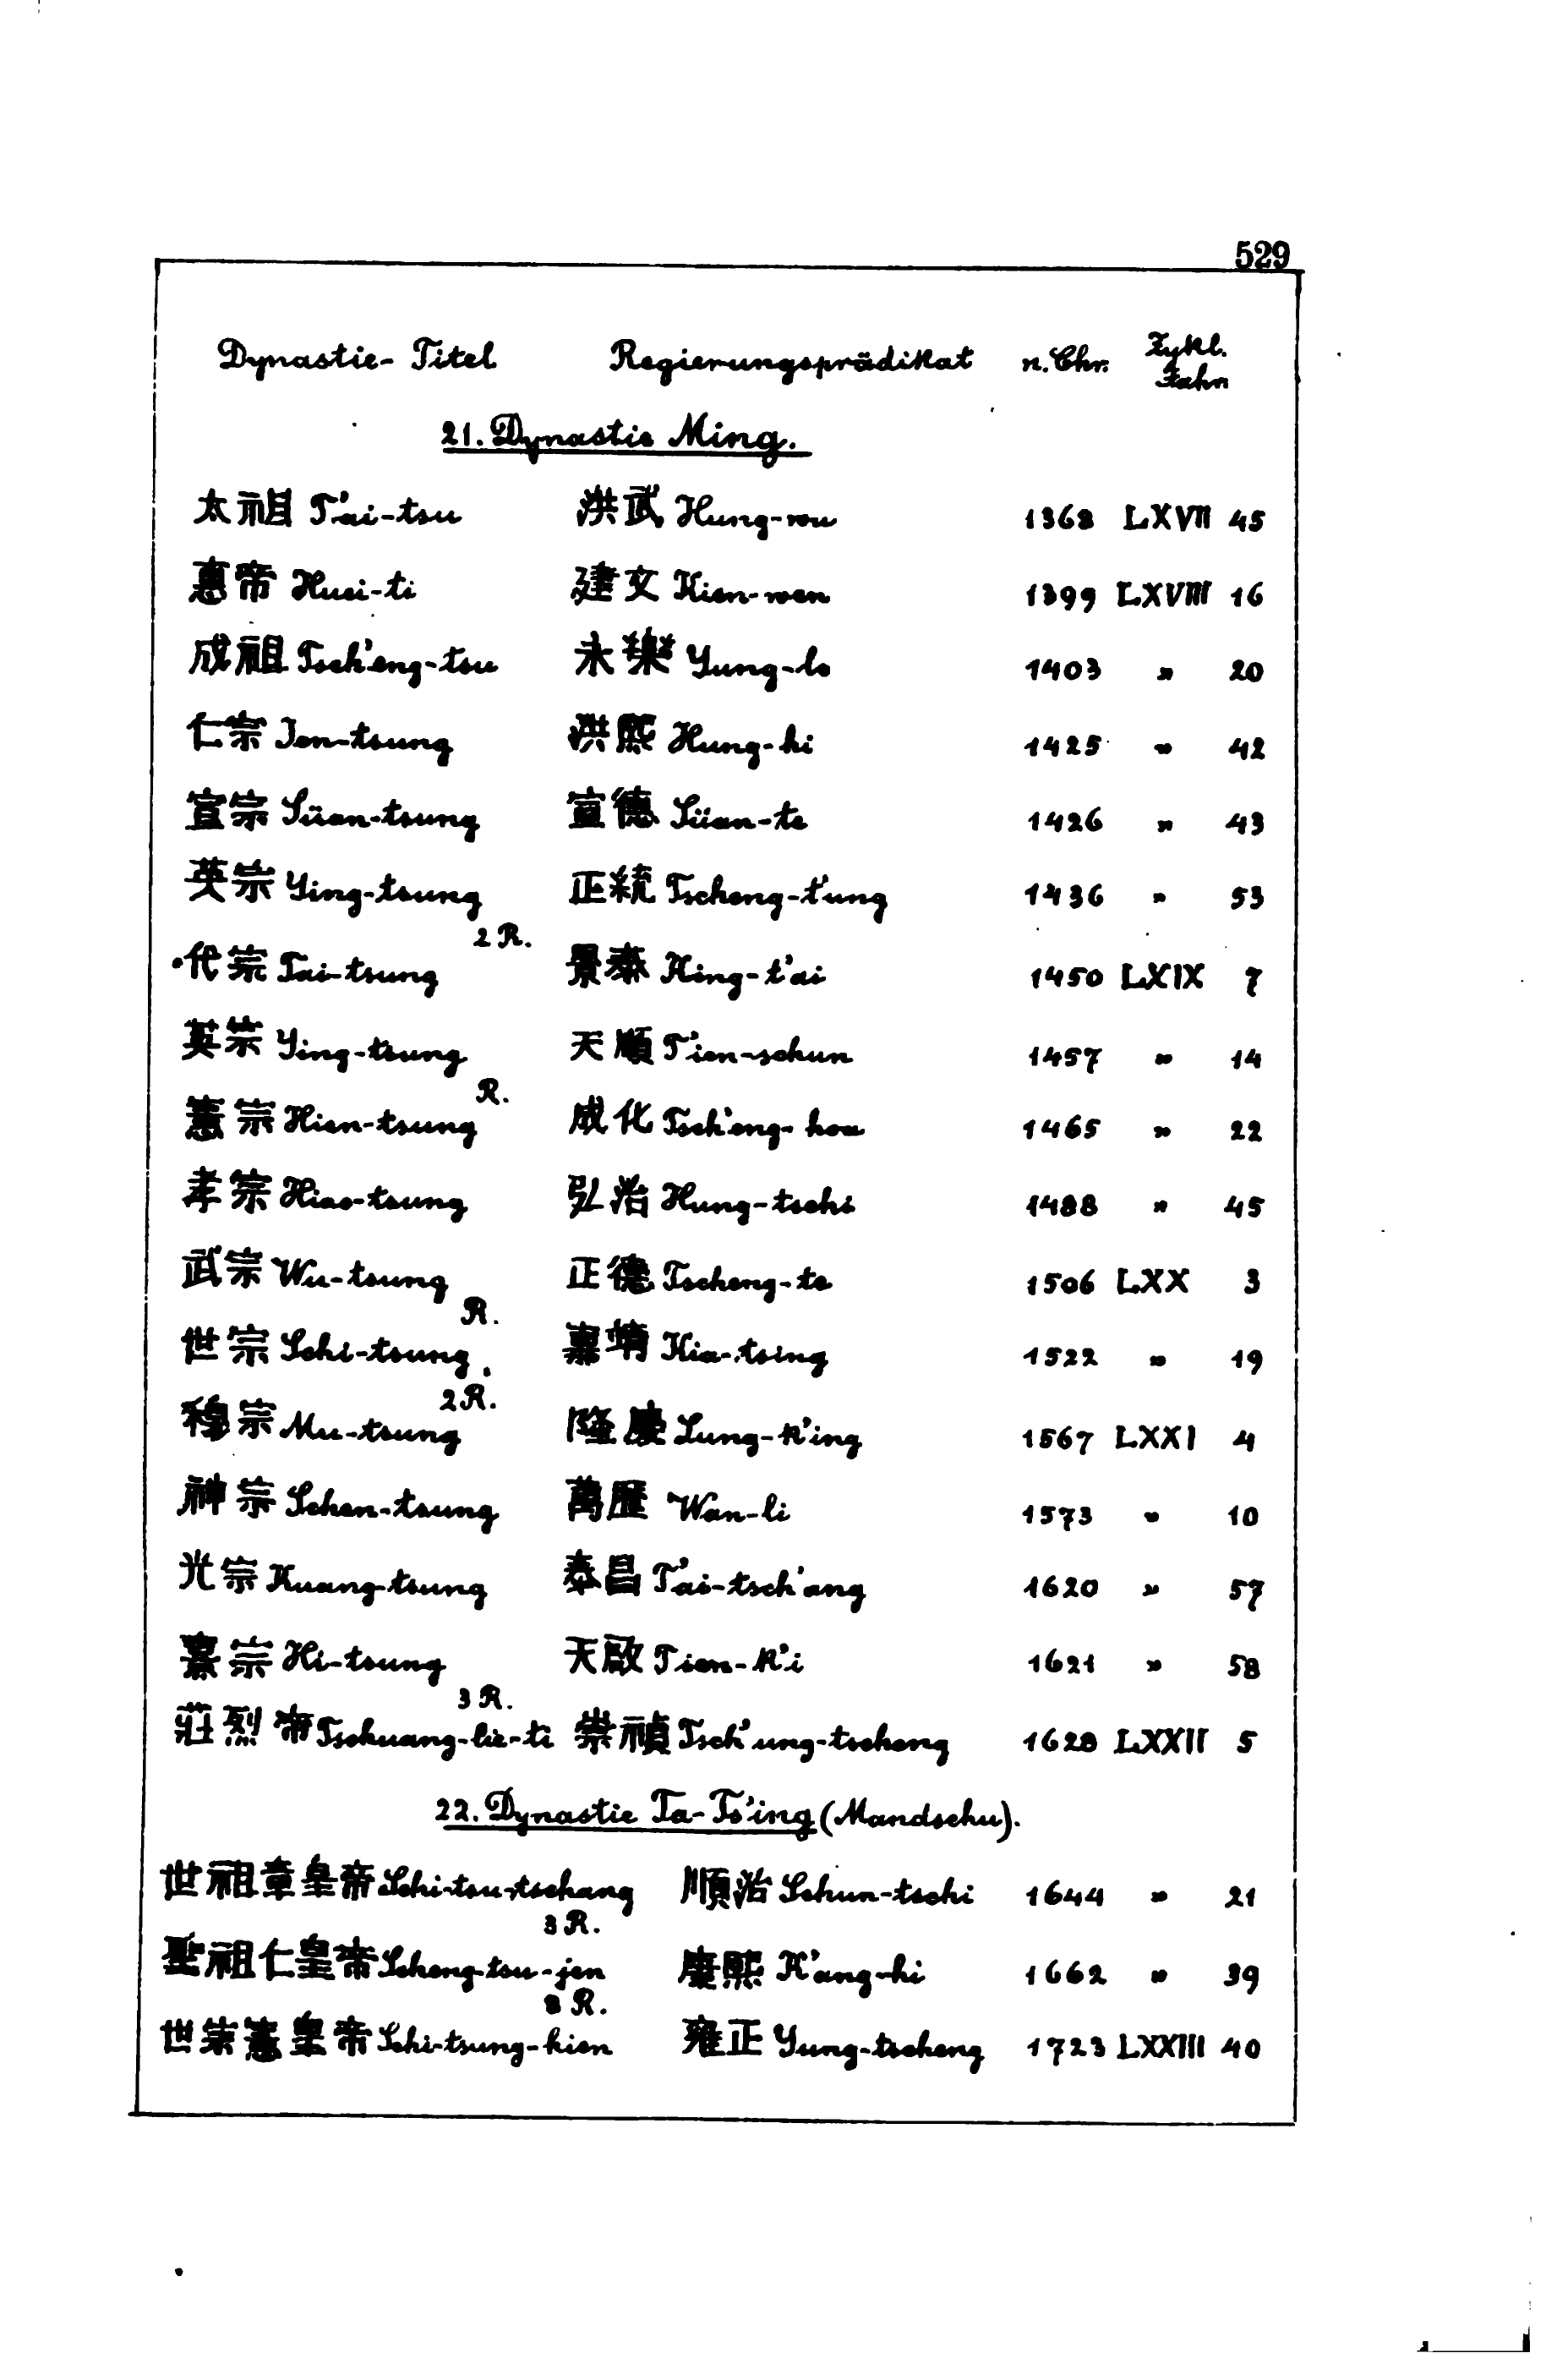 529
Dynastie-Titel Regierungsprädikat n. Chr. Zykl. Jahr
21. Dynastie Ming.
太祖 T'ai-tsu 洪武 Hung-wu 1368 LXVII 45
惠帝 Huei-ti 建文 Kien-wen 1399 LXVIII 16
成祖 Tsch'eng-tsu 永樂 Yung-lo 1403 " 20
仁宗 Jen-tsung 洪熙 Hung-hi 1425 " 42
宣宗 Süan-tsung 宣德 Süan-te 1426 " 43
英宗 Ying-tsung 正統 Tscheng-t'ung 1436 " 53
2 R.
代宗 Tai-tsung 景泰 King-t'ai 1450 LXIX 7
英宗 Ying-tsung 天順 T'ien-schun 1457 " 14
R.
憲宗 Hien-tsung 成化 Tsch'eng-hoa 1465 " 22
孝宗 Hiao-tsung 弘治 Hung-tschi 1488 " 45
武宗 Wu-tsung 正德 Tscheng-te 1506 LXX 3
R.
世宗 Schi-tsung 嘉靖 Kia-tsing 1522 " 19
2 R.
穆宗 Mu-tsung 隆慶 Lung-k'ing 1567 LXXI 4
神宗 Schen-tsung 萬歷 Wan-li 1573 " 10
光宗 Kuang-tsung 泰昌 T'ai-tsch'ang 1620 " 57
熹宗 Hi-tsung 天啟 Tien-k'i 1621 " 58
3 R.
莊烈帝 Tschuang-lie-ti 崇禎 Tsch'ung-tscheng 1628 LXXII 5
22. Dynastie Ta-Ts'ing (Mandschu).
世祖章皇帝 Schi-tsu-tschang 順治 Schun-tschi 1644 " 21
3 R.
聖祖仁皇帝 Scheng-tsu-jen 康熙 K'ang-hi 1662 " 39
R.
世宗憲皇帝 Schi-tsung-hien 雍正 Yung-tscheng 1723 LXXIII 40